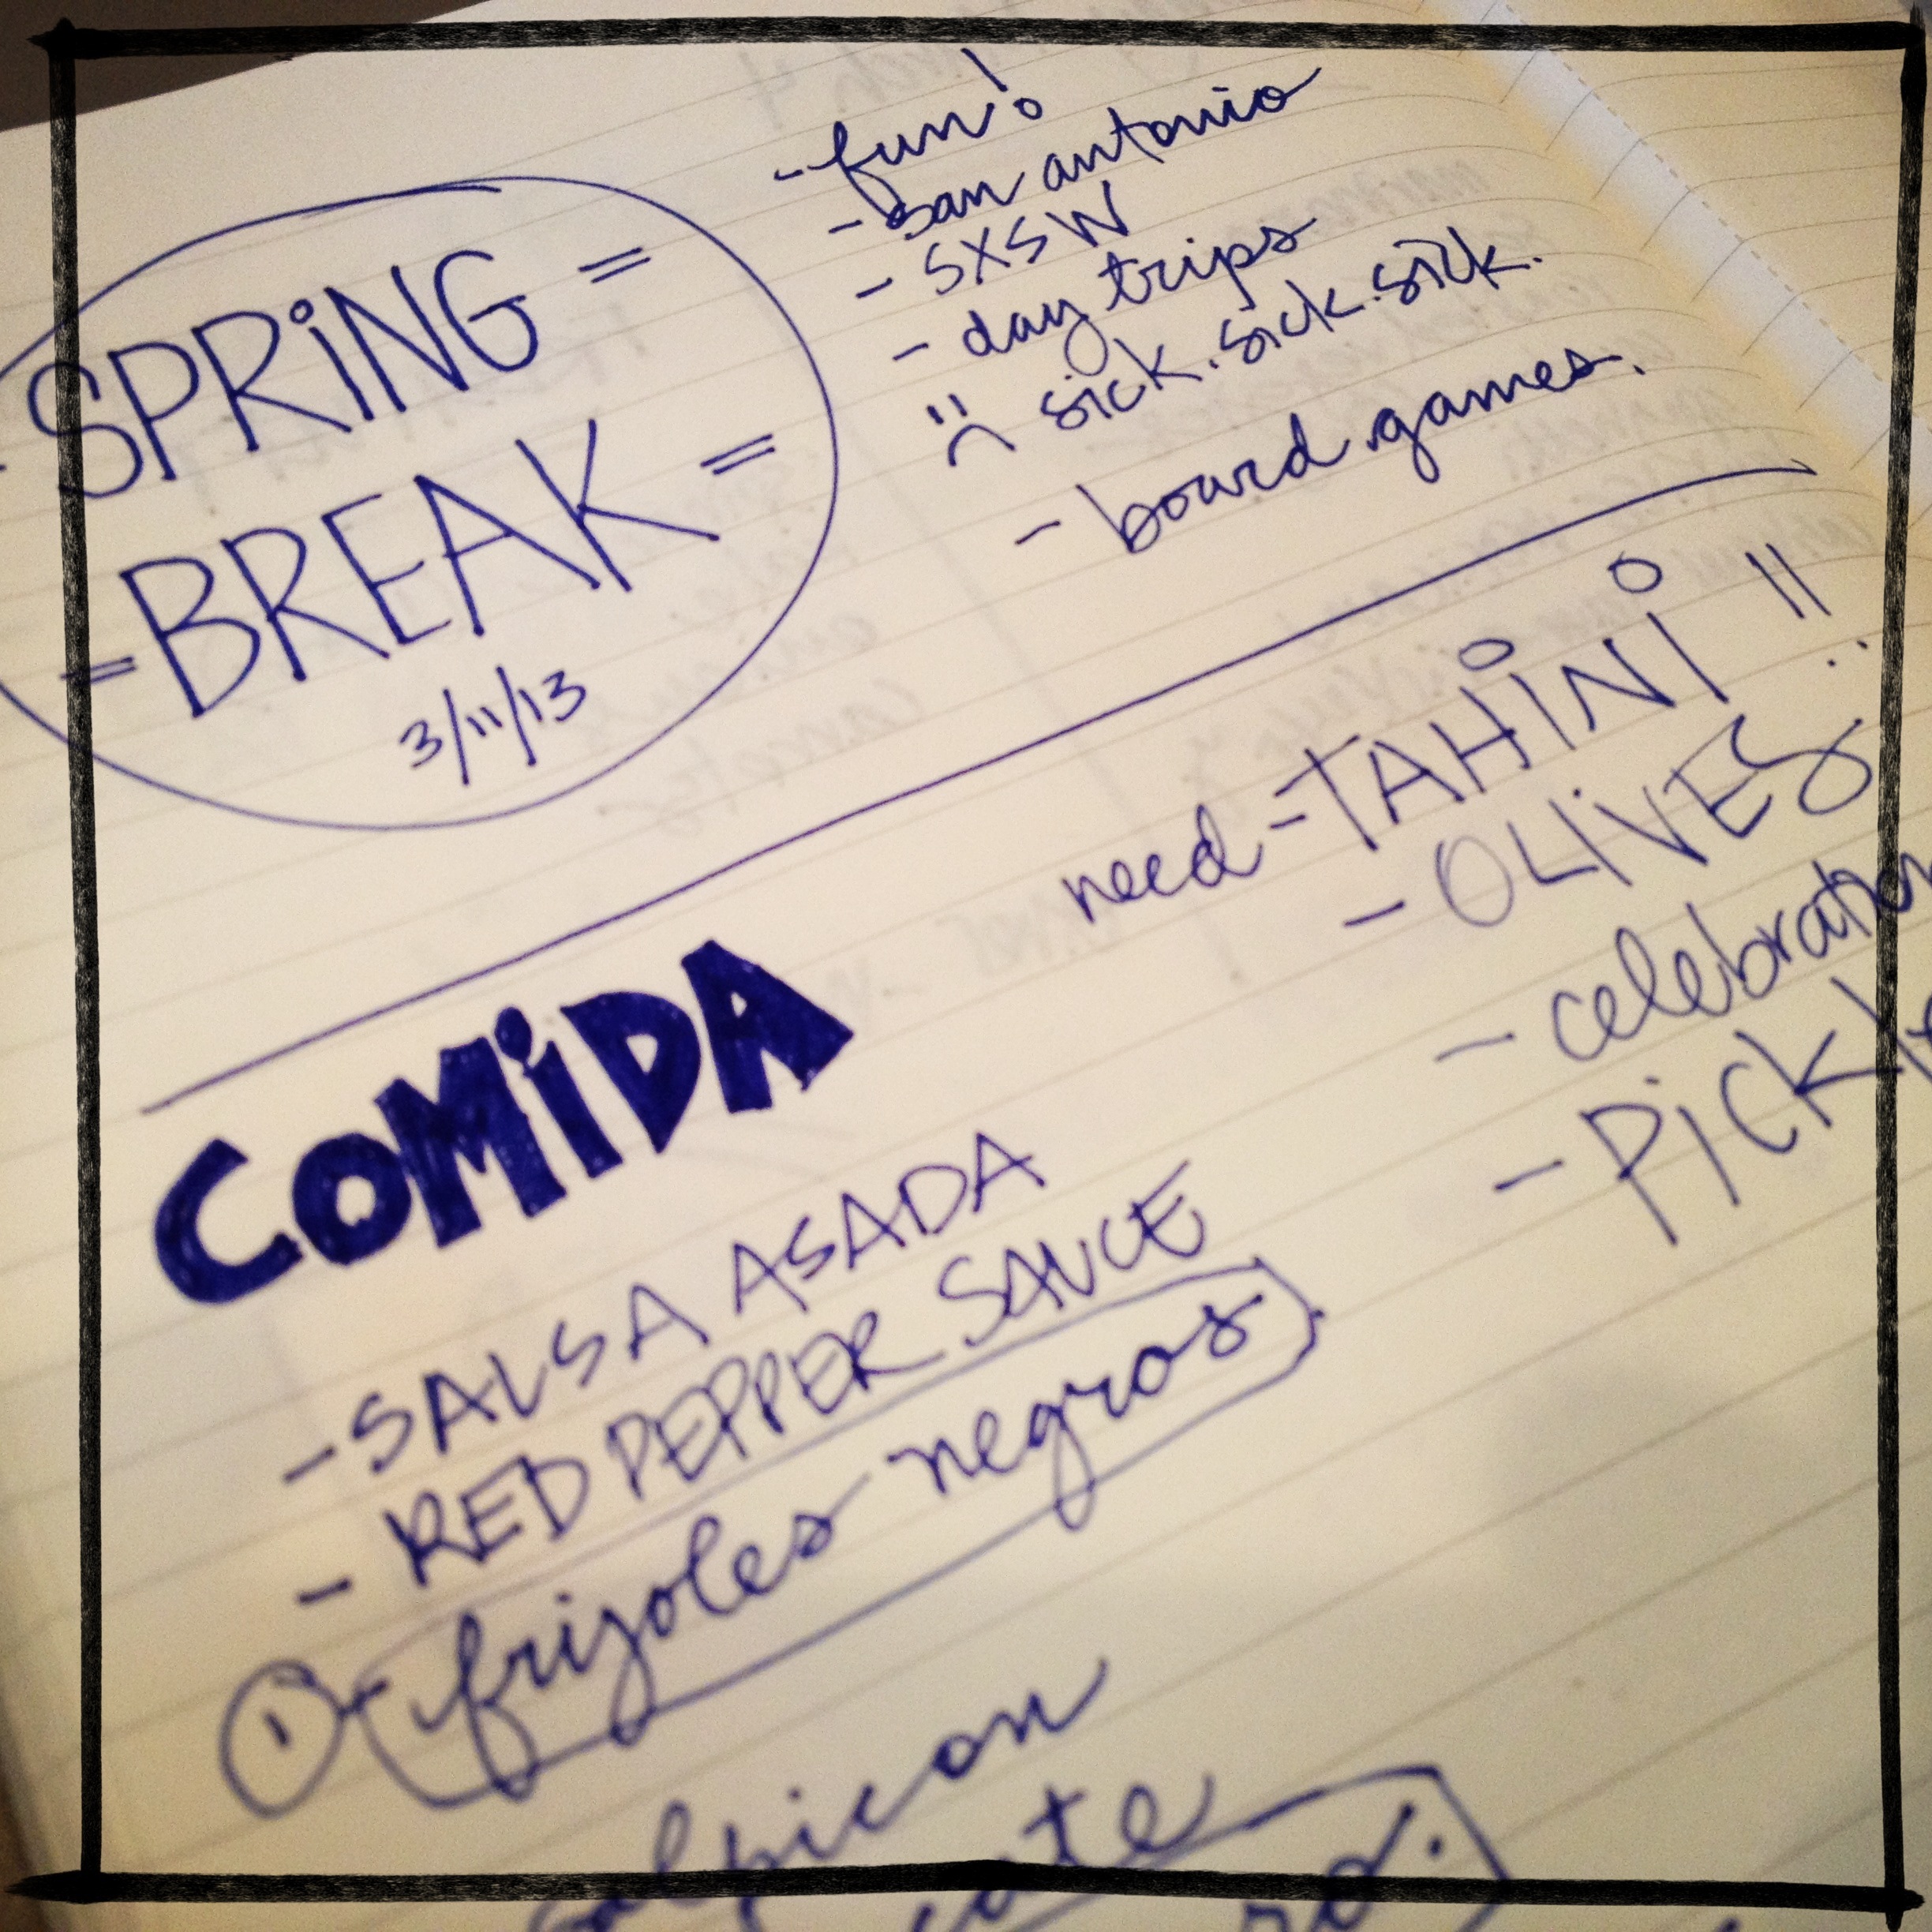 - SPRiNG =
- fun!
- san antonio
- SXSW
- day trips
sick. sick. sick.
- board games.
= BREAK =
3/11/13
need - TAHINI !!
- OLiVES
- celebration
- PICK
COMiDA
- SALSA ASADA
- RED PEPPER SAUCE
1 - frijoles negros
salpicon